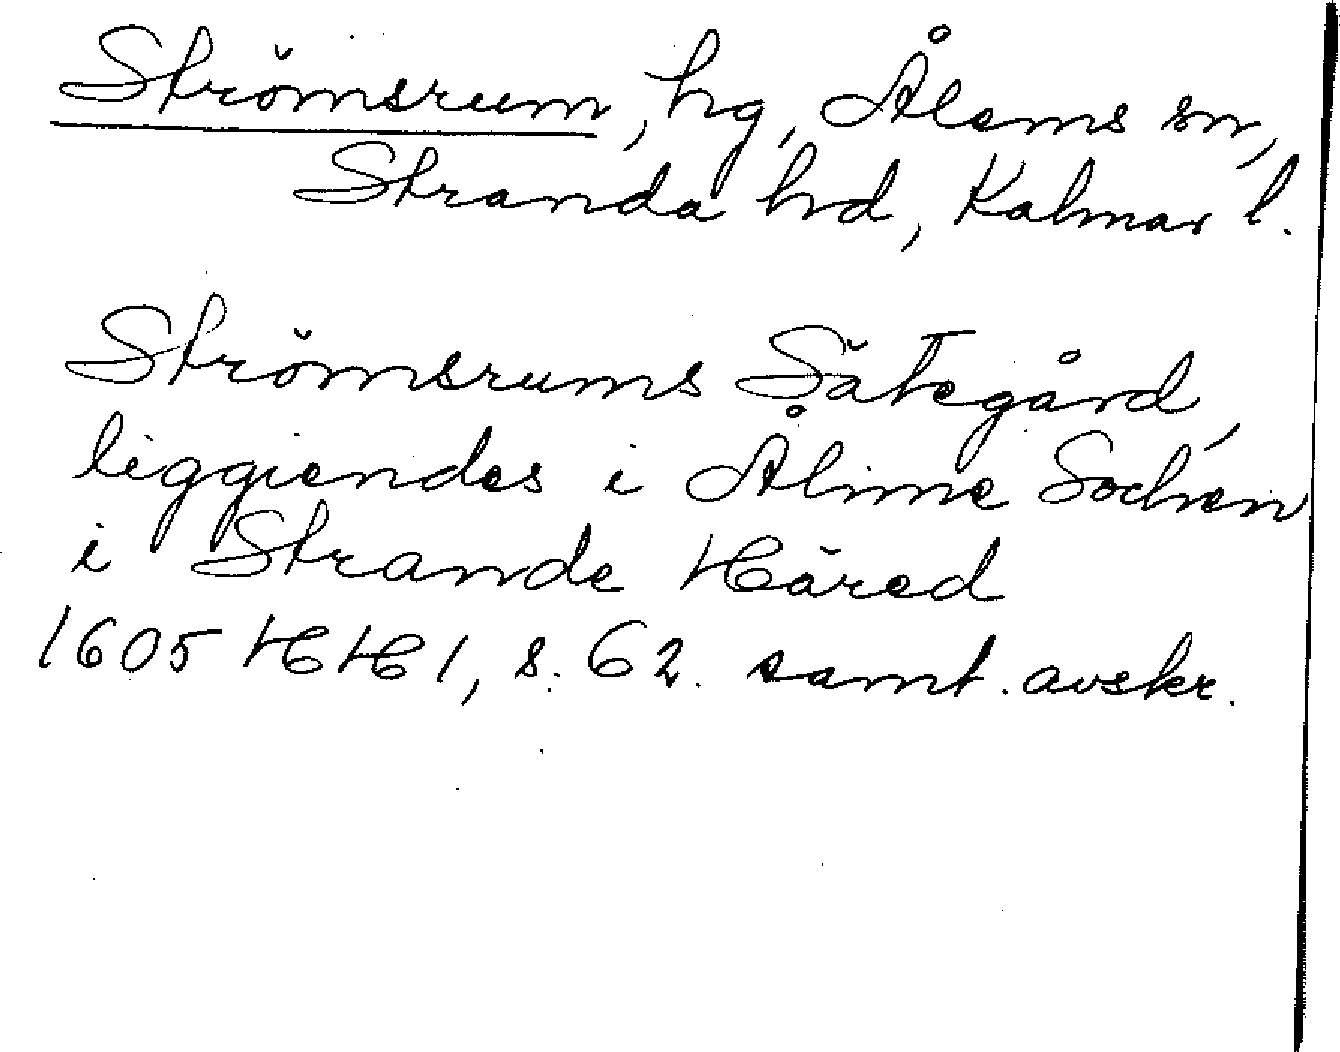 Strömsrum, hg, Ålems sn,
Stranda hd, Kalmar l.
Strömsrums Sätegård,
liggiendes i Ålime Sochen
i Strande Häred
1605 HH 1, s. 62. samt. avskr.